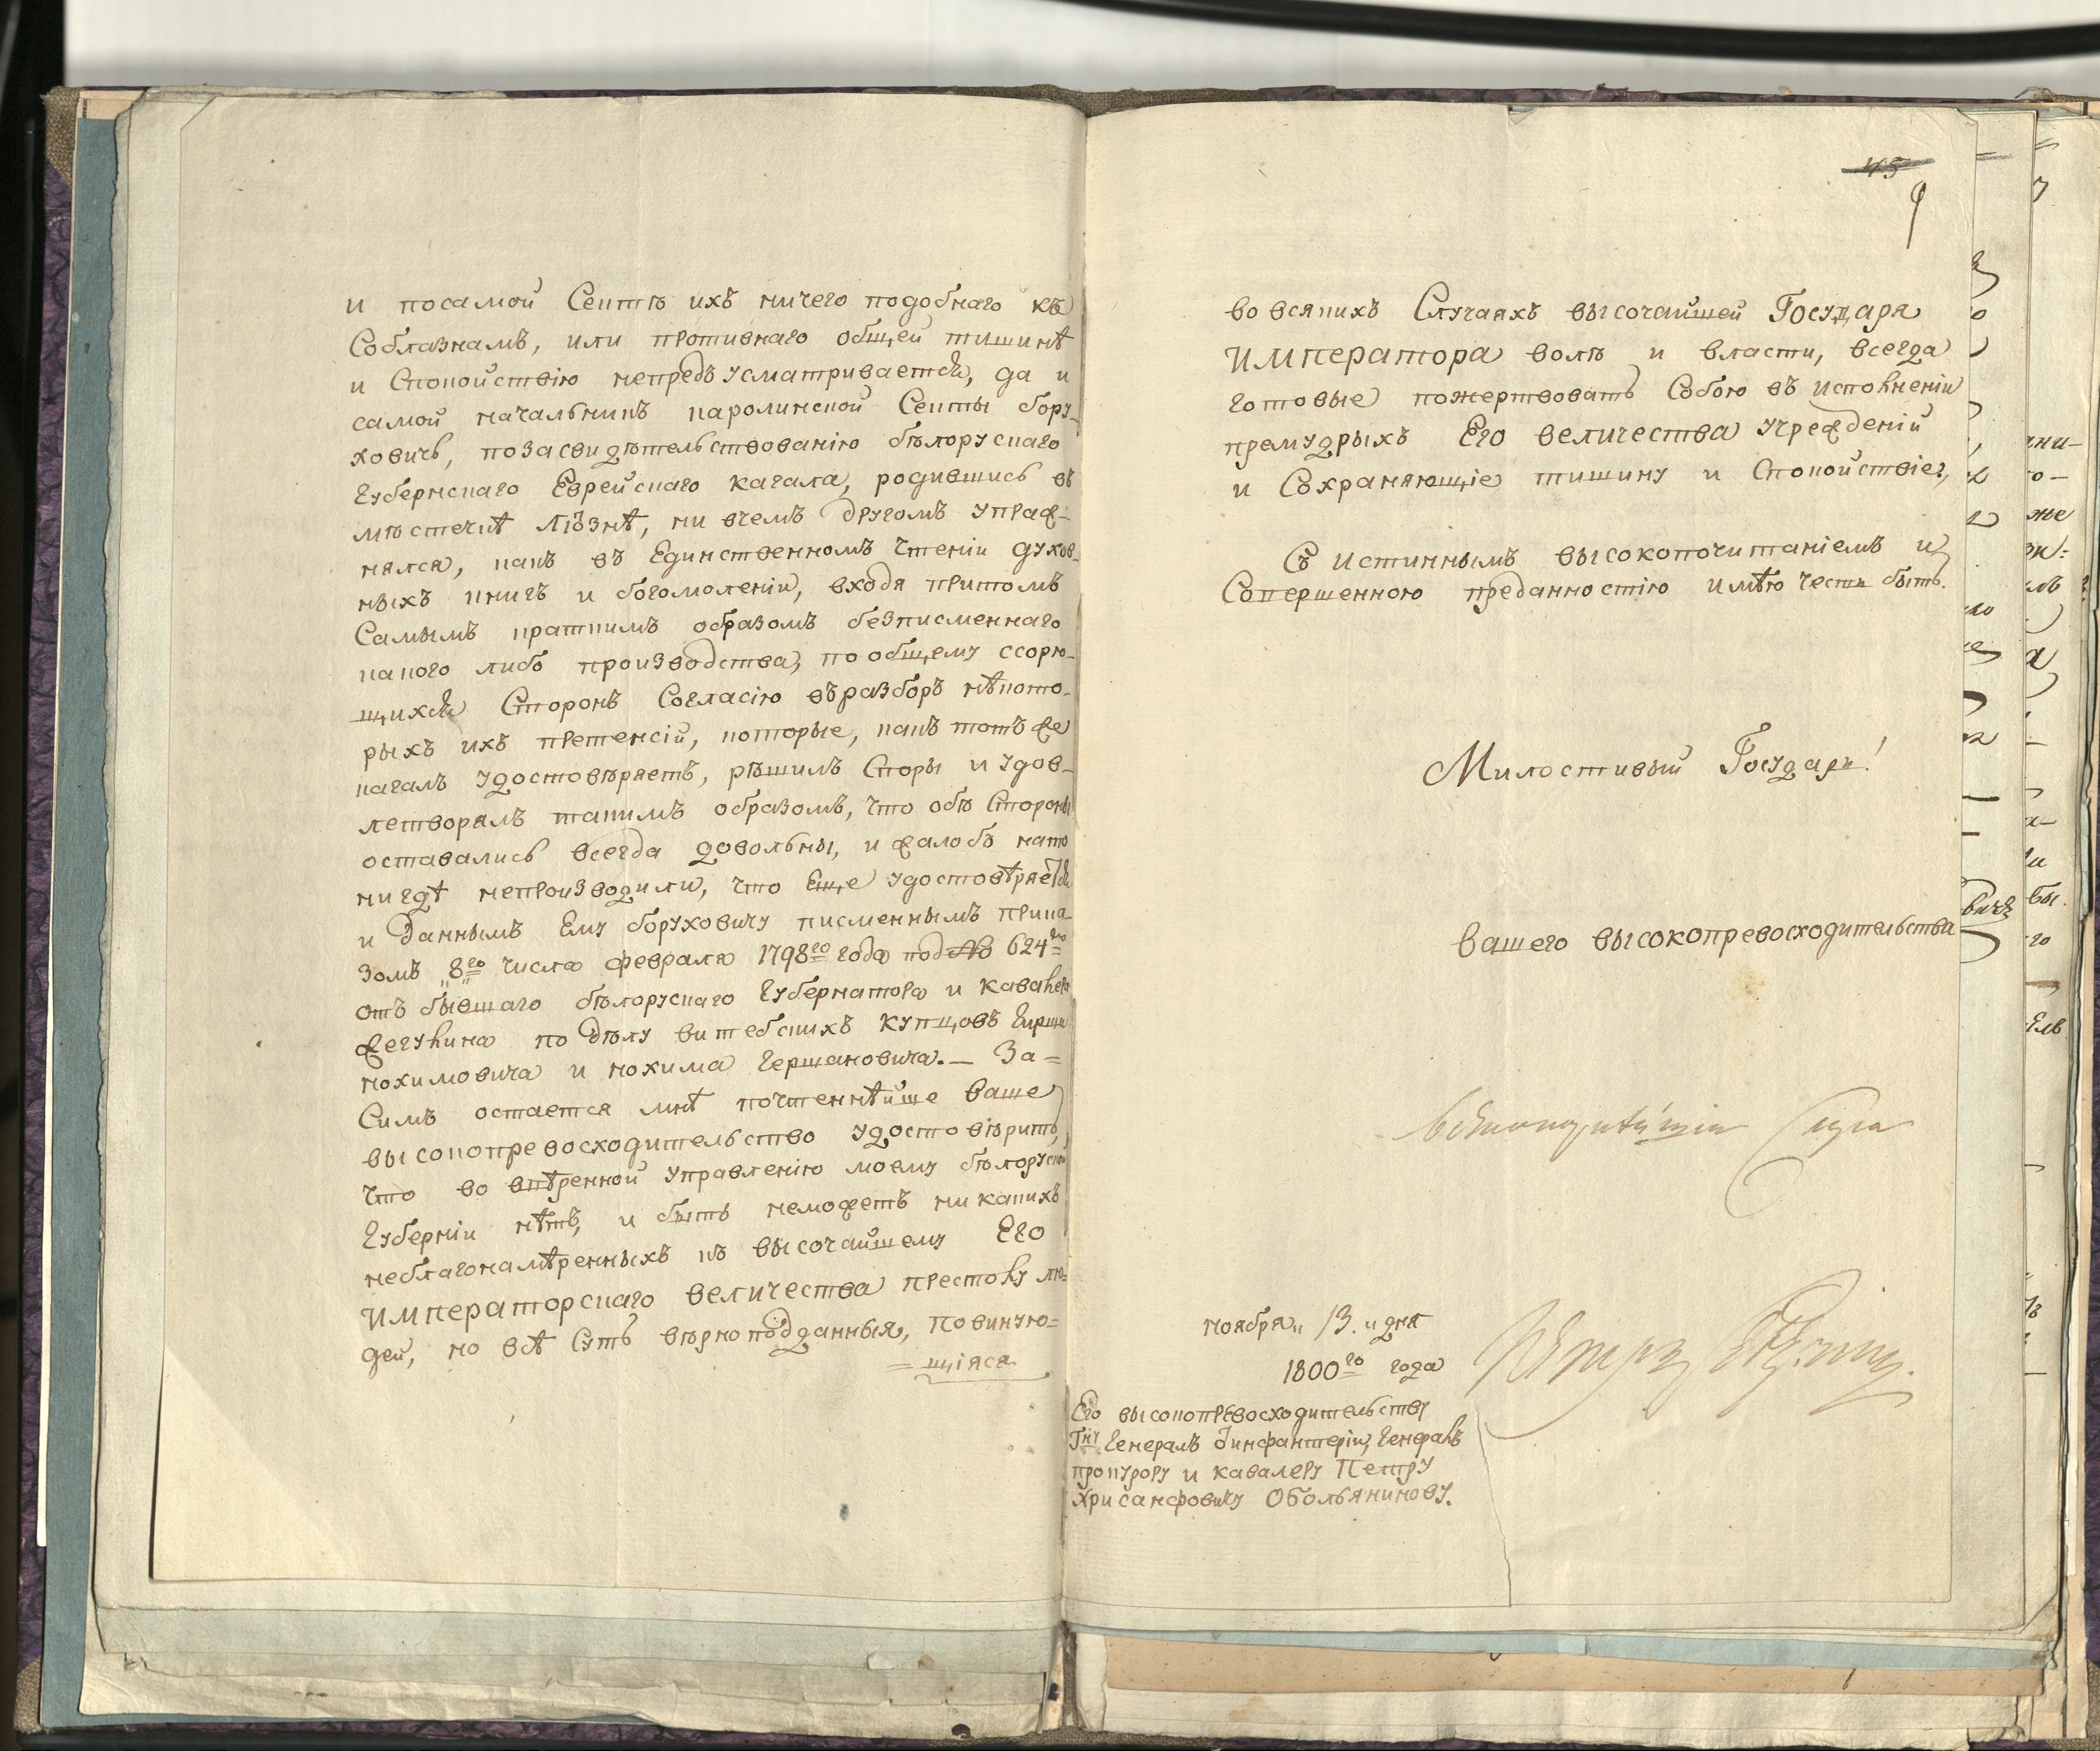 и посамой Сектѣ ихъ ничего подобнаго къ
Соблазнамъ, или противнаго общей тишинѣ
и Спокойствію непредъусматривается, да и
самой начальникъ каролинской Секты бору-
ховичь, позасвидѣтельствованію бѣлорускаго
Губернскаго Еврейскаго кагала, родившись въ
мѣстечкѣ Лïознѣ, ни вчемъ другомъ упраж-
нялся, какъ въ Единственномъ чтеніи духов-
ныхъ книгъ и богомоленіи, входя притомъ
Самымъ краткимъ образомъ безписменнаго
какого либо производства, пообщему ссорю-
щихся Сторонъ Согласію въразборъ нѣкото-
рыхъ ихъ претенсій, которые, какъ тотъ же
кагалъ удостовѣряетъ, рѣшилъ Споры и удов-
летворялъ такимъ образомъ, что обѣ Стороны
оставались всегда довольны, и жалобъ нато
нигдѣ непроизводили, что Еще удостовѣряется
и даннымъ Ему боруховичу писменнымъ прика-
зомъ „8го„ числа февраля 1798го года под № 624мъ
отъ бывшаго бѣлорускаго Губернатора и кавалера
жегулина по дѣлу витебскихъ купцовъ Гирши
нохимовича и нохима Гершановича. — За=
Симъ остается мнѣ почтеннѣйше ваше
высокопревосходительство удостовѣрить,
что во ввѣренной управленію моему бѣлоруской
Губерніи нѣтъ, и быть неможетъ никакихъ
неблагонамѣренныхъ къ высочайшему Его
императорскаго величества престолу лю=
дей, но всѣ Суть вѣрноподданныя, повиную=
= щіяся
45
9
вовсякихъ Случаяхъ высочайшей Государя
императора волѣ и власти, всегда
готовые пожертвовать Собою въ исполненіи
премудрыхъ Его величества учрежденій
и Сохраняющіе тишину и Спокойствіе,
Съ истиннымъ высокопочитаніемъ и
Совершенною преданностію имѣю честь быть.
Милостивый Государь!
вашего высокопревосходительства
Слуга
ноября „ 13. „ дня
1800го года
Его высокопревосходительству
Гну Генералъ Ѓинфантеріи, Генералъ
прокурору и кавалеру Петру
Хрисанфовичу Обольянинову.